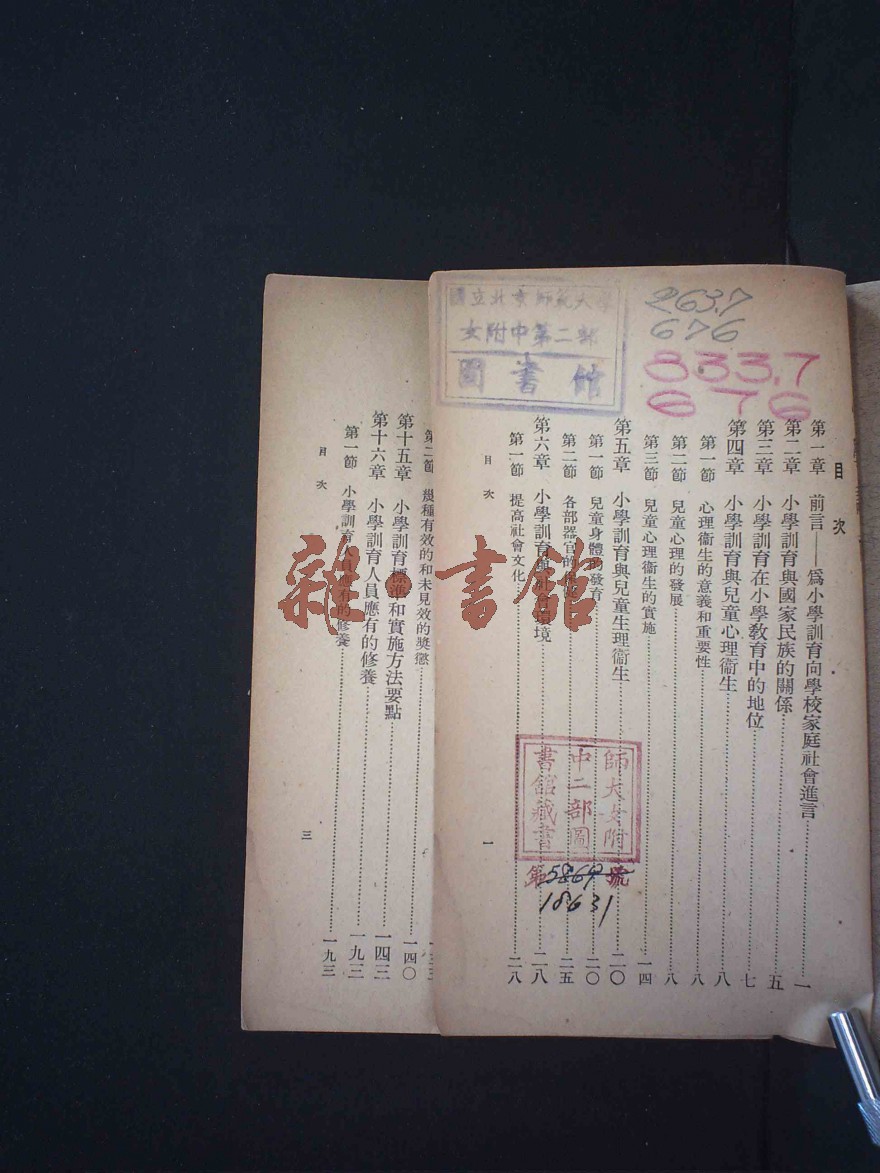 國立北京師範大學
女附中第二部
圖書館
263.7
676
833.7
676
目次
第一章 前言——爲小學訓育向學校家庭社會進言 一
第二章 小學訓育與國家民族的關係 五
第三章 小學訓育在小學教育中的地位 七
第四章 小學訓育與兒童心理衞生 八
第一節 心理衞生的意義和重要性 八
第二節 兒童心理的發展 八
第三節 兒童心理衞生的實施 一四
第五章 小學訓育與兒童生理衞生 二〇
第一節 兒童身體的發育 二〇
第二節 各部器官的 二五
第六章 小學訓育與社會環境 二八
第一節 提高社會文化 二八
目次
一
師大女附
中二部圖
書館藏書
第5869號
18631
第二節 幾種有效的和未見效的獎懲
第十五章 小學訓育標準和實施方法要點 一四〇
第十六章 小學訓育人員應有的修養 一四三
第一節 小學訓育人員應有的修養 一九三
一九三
目次
三
雜·書館